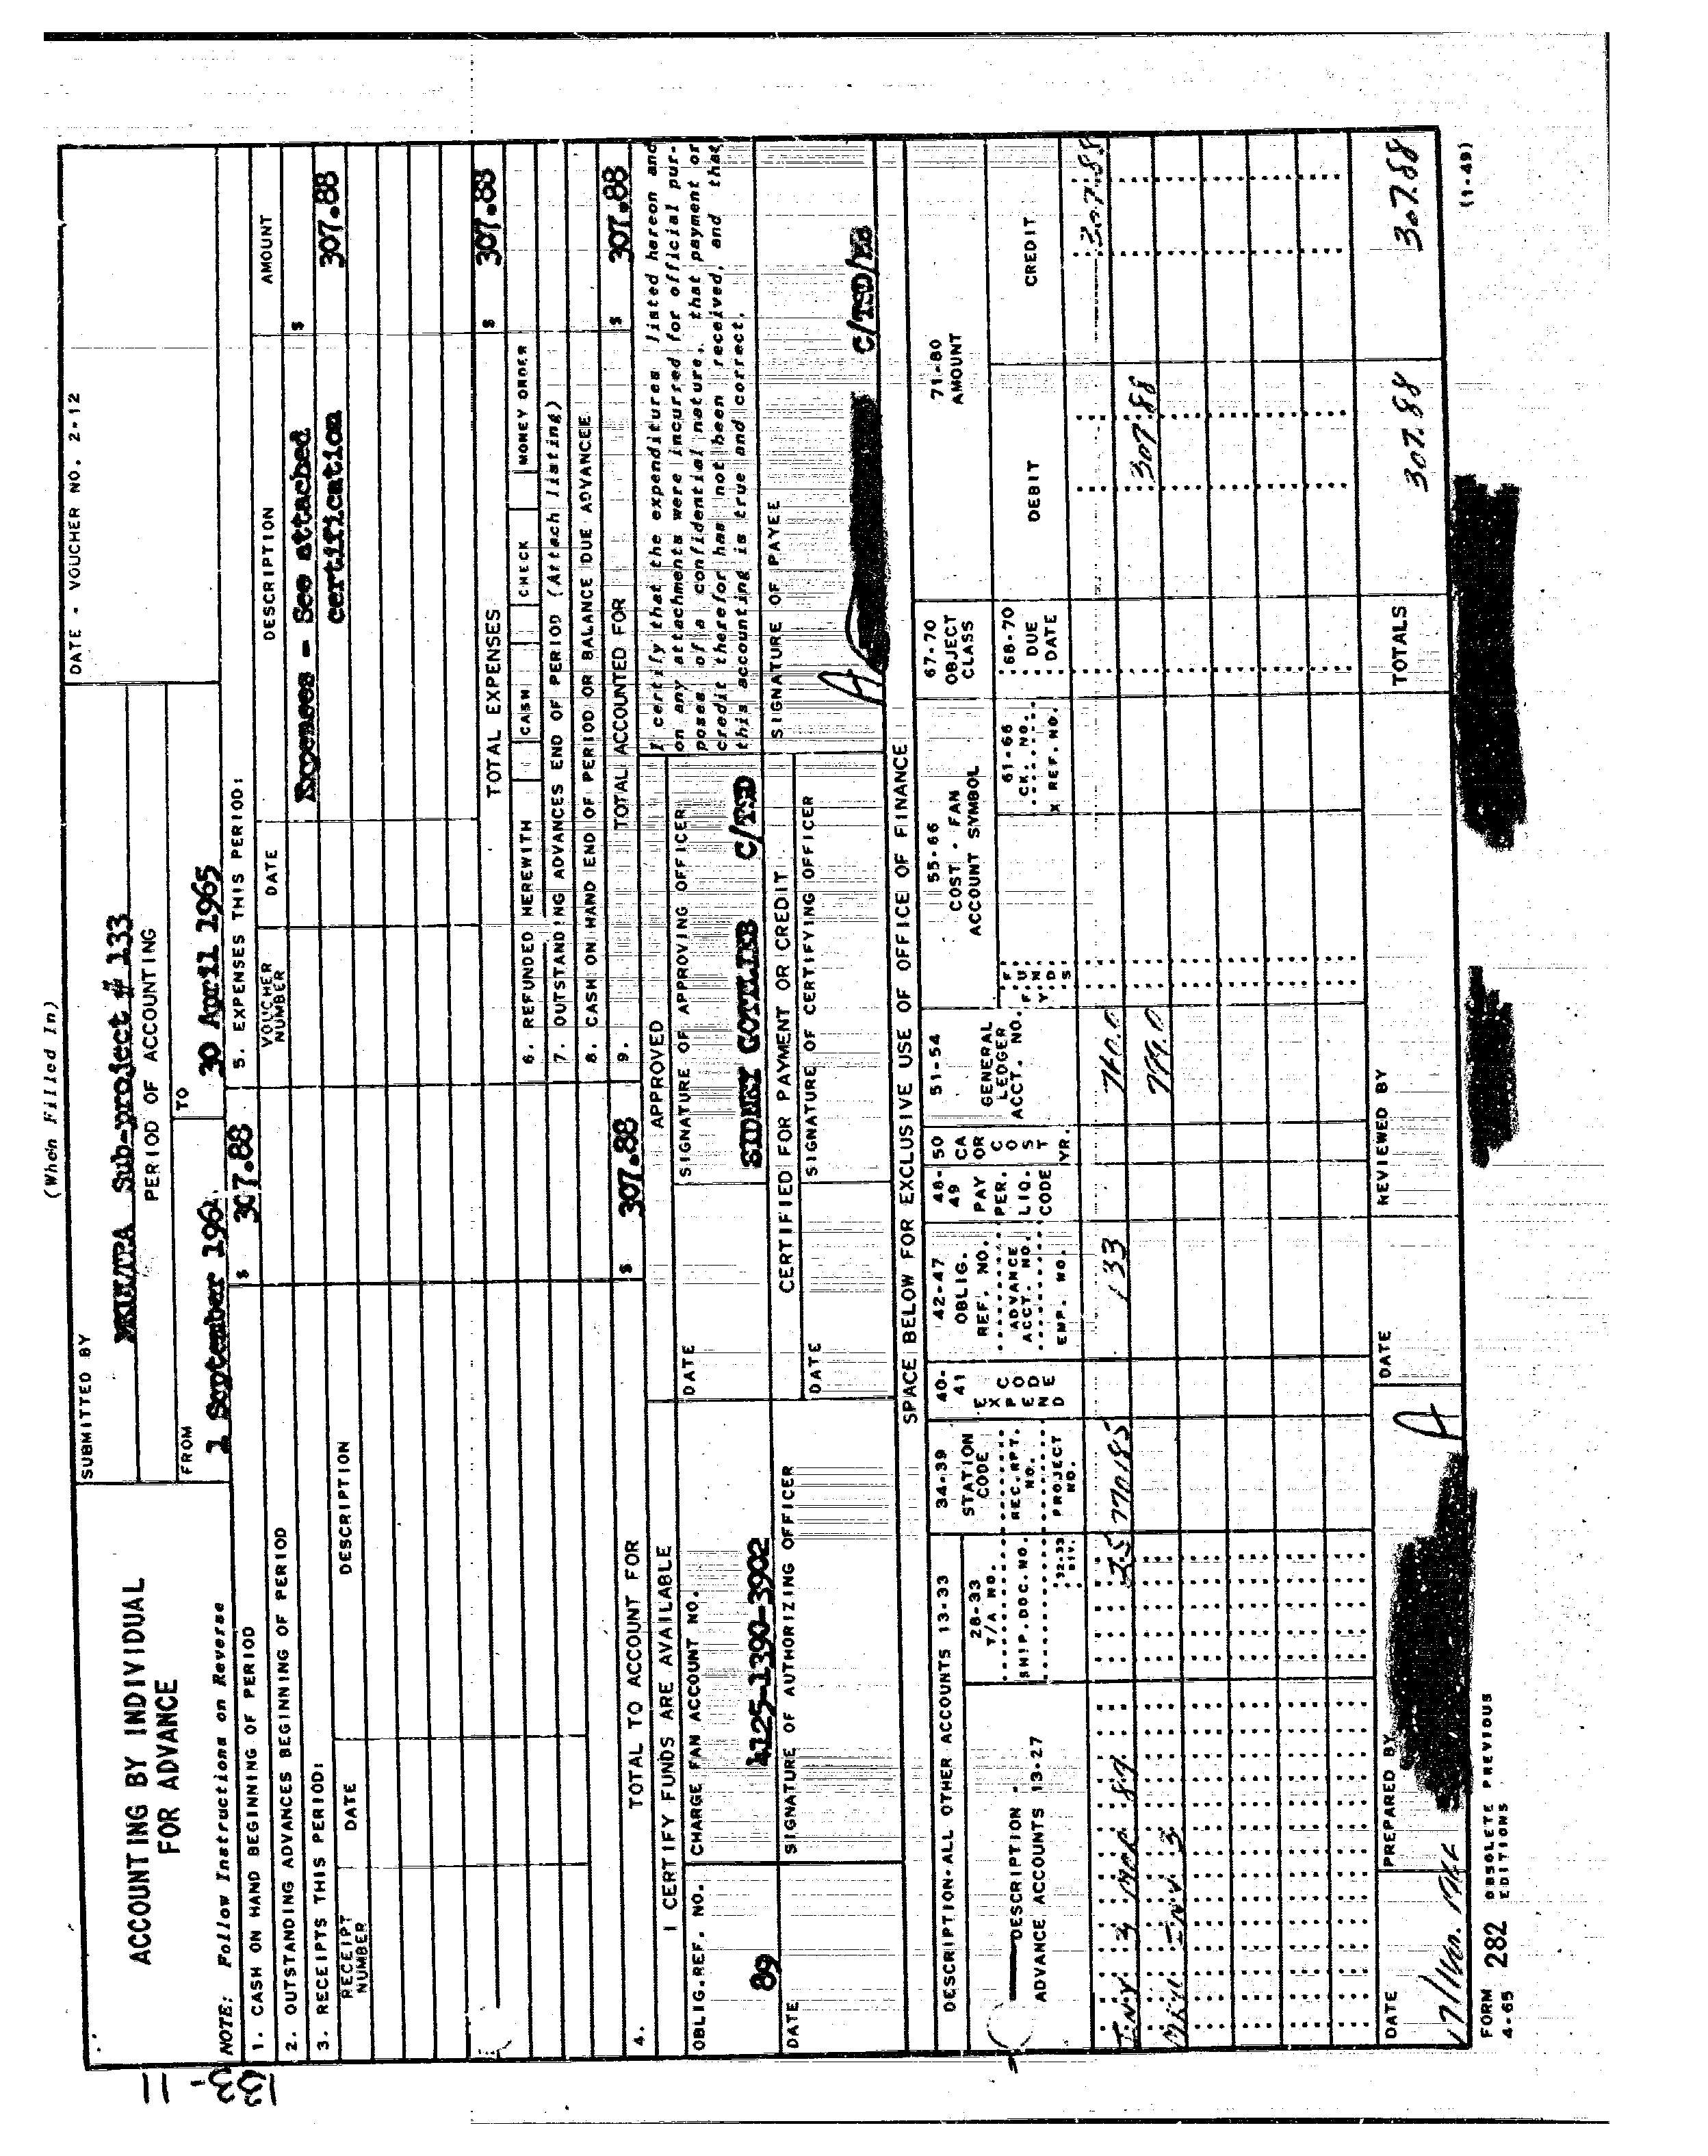 (When Filled In)
ACCOUNTING BY INDIVIDUAL
FOR ADVANCE
SUBMITTED BY
MKULTRA Sub-project # 133
PERIOD OF ACCOUNTING
FROM
1 September 1964
TO
30 April 1965
DATE - VOUCHER NO. 2-12
NOTE: Follow Instructions on Reverse
1. CASH ON HAND BEGINNING OF PERIOD
$ 307.88
2. OUTSTANDING ADVANCES BEGINNING OF PERIOD
3. RECEIPTS THIS PERIOD:
RECEIPT NUMBER
DATE
DESCRIPTION
5. EXPENSES THIS PERIOD:
VOUCHER NUMBER
DATE
DESCRIPTION
AMOUNT
Expenses - See attached
certification
$
307.88
TOTAL EXPENSES
$ 307.88
6. REFUNDED HEREWITH CASH CHECK MONEY ORDER
7. OUTSTANDING ADVANCES END OF PERIOD (Attach listing)
8. CASH ON HAND END OF PERIOD OR BALANCE DUE ADVANCEE
4. TOTAL TO ACCOUNT FOR $ 307.88
9. TOTAL ACCOUNTED FOR $ 307.88
I CERTIFY FUNDS ARE AVAILABLE
OBLIG.REF. NO.
89
CHARGE FAN ACCOUNT NO.
4125-1390-3902
DATE
SIGNATURE OF AUTHORIZING OFFICER
APPROVED
DATE
SIGNATURE OF APPROVING OFFICER
SIDNEY GOTTLIEB C/TSD
CERTIFIED FOR PAYMENT OR CREDIT
DATE
SIGNATURE OF CERTIFYING OFFICER
I certify that the expenditures listed hereon and
on any attachments were incurred for official pur-
poses of a confidential nature, that payment or
credit therefor has not been received, and that
this accounting is true and correct.
SIGNATURE OF PAYEE
A
SPACE BELOW FOR EXCLUSIVE USE OF OFFICE OF FINANCE
DESCRIPTION-ALL OTHER ACCOUNTS 13-33
DESCRIPTION -
ADVANCE ACCOUNTS 13-27
28-33
T/A NO.
SHIP.DOC.NO.
32-33
DIV.
34-39
STATION
CODE
REC.RPT.
NO.
PROJECT
NO.
40-
41
EXPEND
CODE
42-47
OBLIG.
REF. NO.
ADVANCE
ACCT. NO.
EMP. NO.
48-
49
PAY
PER.
LIQ.
CODE
50
CA
OR
COST
YR.
51-54
GENERAL
LEDGER
ACCT. NO.
55-66
COST - FAN
ACCOUNT SYMBOL
FUNDS
F.Y.
61-66
CK. NO.
X REF. NO.
67-70
OBJECT
CLASS
68-70
DUE
DATE
71-80
AMOUNT
DEBIT
CREDIT
89 133 740.0 307.88
INV 3 307.88
TOTALS 307.88 307.88
DATE
PREPARED BY
A
DATE
REVIEWED BY
FORM
4-65 282 OBSOLETE PREVIOUS
EDITIONS
(1-49)